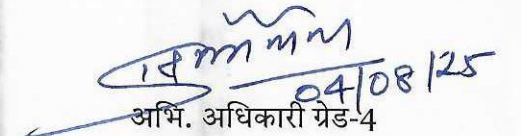 04/08/25
अभि. अधिकारी ग्रेड-4